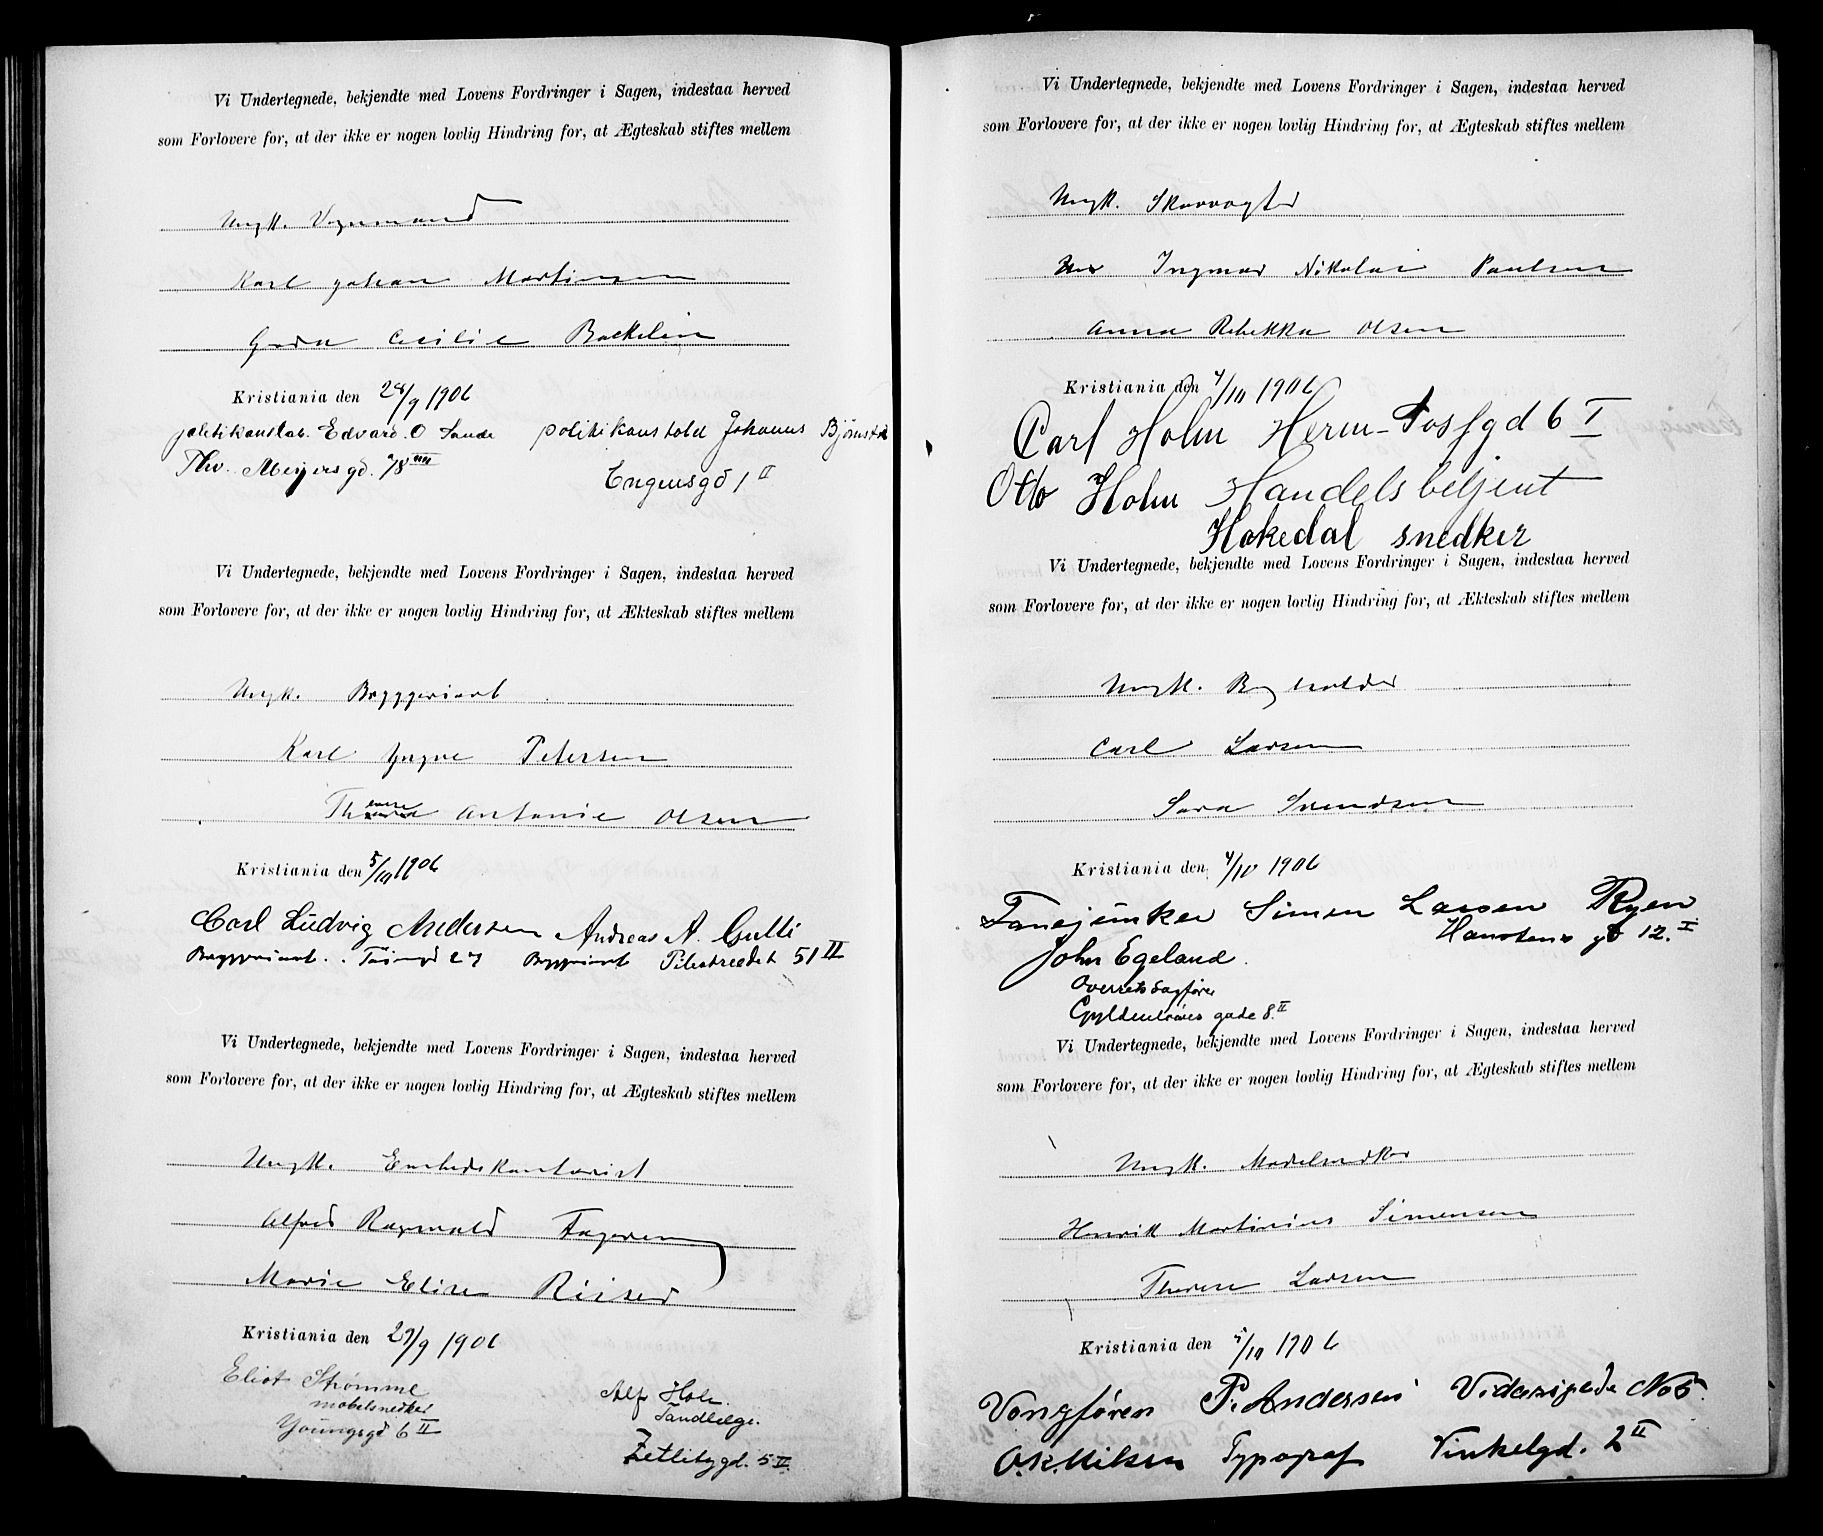 Vi Undertegnede, bekjendte med Lovens Fordringer i Sagen, indestaa herved
som Forlovere for, at der ikke er nogen lovlig Hindring for, at Ægteskab stiftes mellem
Ungk. Vognmand
Karl Johan Martinsen
Cecilie
Kristiania den 28/9 1906
politikonstab. Edvard O Sande politikonstabl Johannes
Thv. Meyers gd. 78
Engensgd 1 II
Vi Undertegnede, bekjendte med Lovens Fordringer i Sagen, indestaa herved
som Forlovere for, at der ikke er nogen lovlig Hindring for, at Ækteskab stiftes mellem
Ungk. Bryggeriarb
Karl Yngve Petersen
Antonie Olsen
Kristiania den 5/10 1906
Carl Ludvig Andersen Andreas A. Gulli
Bryggeriarb. Bryggeriarb Pilestrædet 51 II
Vi Undertegnede, bekjendte med Lovens Fordringer i Sagen, indestaa herved
som Forlovere for, at der ikke er nogen lovlig Hindring for, at Ægteskab stiftes mellem
Ungk. Embedskontorist
Alfred Ragnvald
Marie Elise Riiser
Kristiania den 29/9 1906
Eliot Strømme
møbelsnedker
Youngsgd 6 II
Alf
Tandlæge.
Zetlitzgd. 5 II.
Vi Undertegnede, bekjendte med Lovens Fordringer i Sagen, indestaa herved
som Forlovere for, at der ikke er nogen lovlig Hindring for, at Ægteskab stiftes mellem
Ungk. Skovvogter
Ingmar Nikolai Paulsen
Anna Rebekka Olsen
Kristiania den 4/10 1906
Carl Holm Herm-Fossgd 6 I
Otto Holm Handelsbetjent
Hakedal snedker
Vi Undertegnede, bekjendte med Lovens Fordringer i Sagen, indestaa herved
som Forlovere for, at der ikke er nogen lovlig Hindring for, at Ækteskab stiftes mellem
Ungk. Bogholder
Carl Larsen
Sara Svendsen
Kristiania den 4/10 1906
Simen Larsen Ryen
Hanstens gt 12. I
John Egeland.
Overretssagfører
Gyldenløves gade 8. II
Vi Undertegnede, bekjendte med Lovens Fordringer i Sagen, indestaa herved
som Forlovere for, at der ikke er nogen lovlig Hindring for, at Ægteskab stiftes mellem
Ungk. Modelsnedker
Henrik Martinius Simensen
Therese Larsen
Kristiania den 5/10 1906
P. Andersen
Typograf Vinkelgd. 2 II